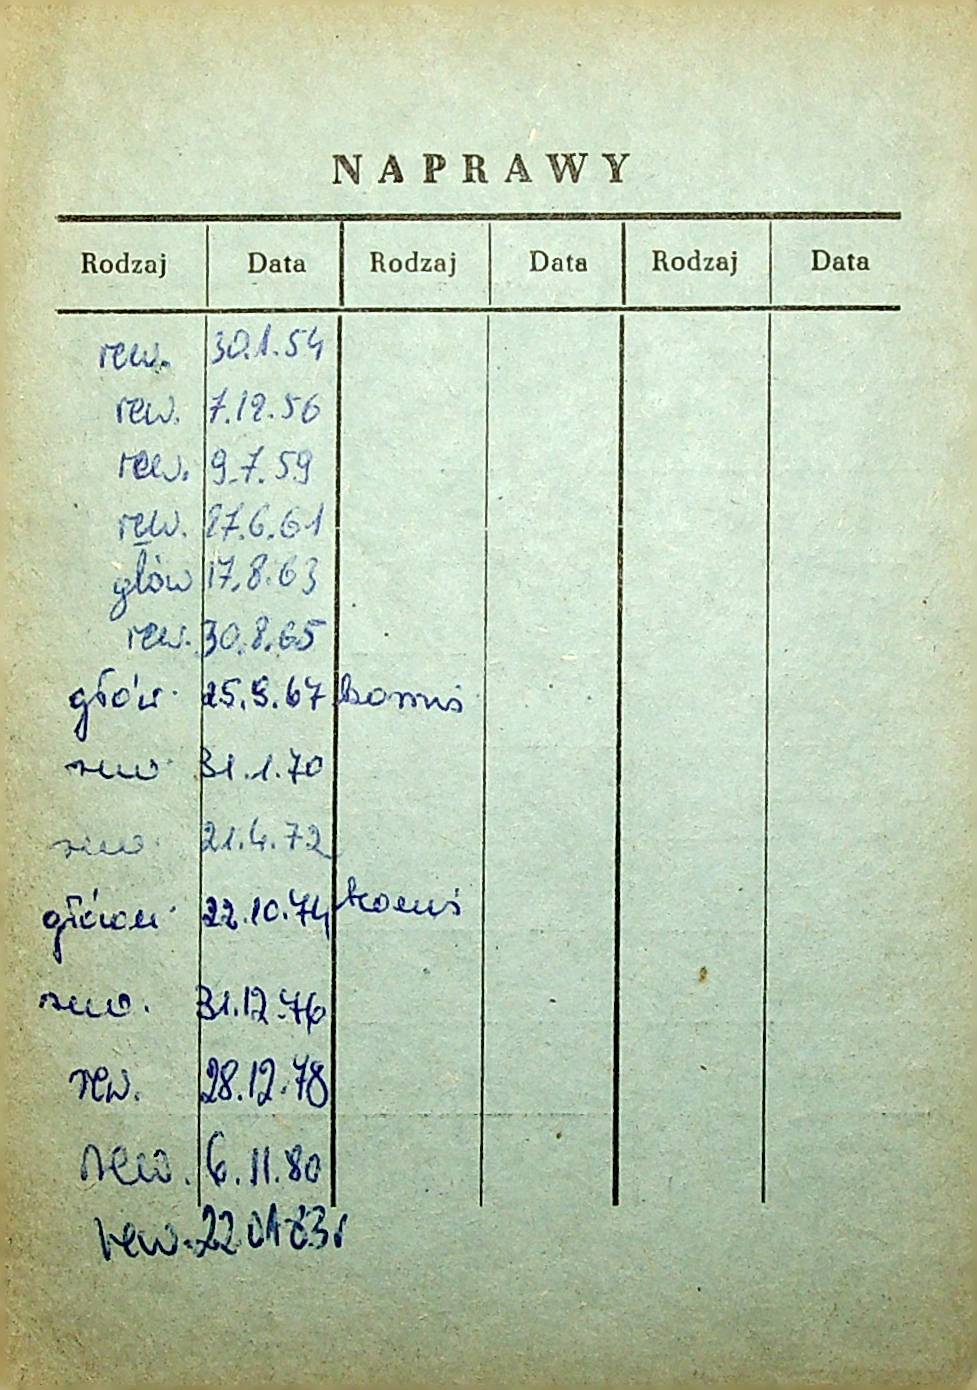 NAPRAWY
Rodzaj Data Rodzaj Data Rodzaj Data
rew. 30.1.54
rew. 7.12.56
rew. 9.7.59
rew. 27.6.61
głów 17.8.63
rew. 30.8.65
głów. 25.9.67
rew. 31.1.70
rew. 21.4.72
główn. 22.10.74
rew. 31.12.76
rew. 28.12.78
rew. 6.11.80
rew. 22 01 83r